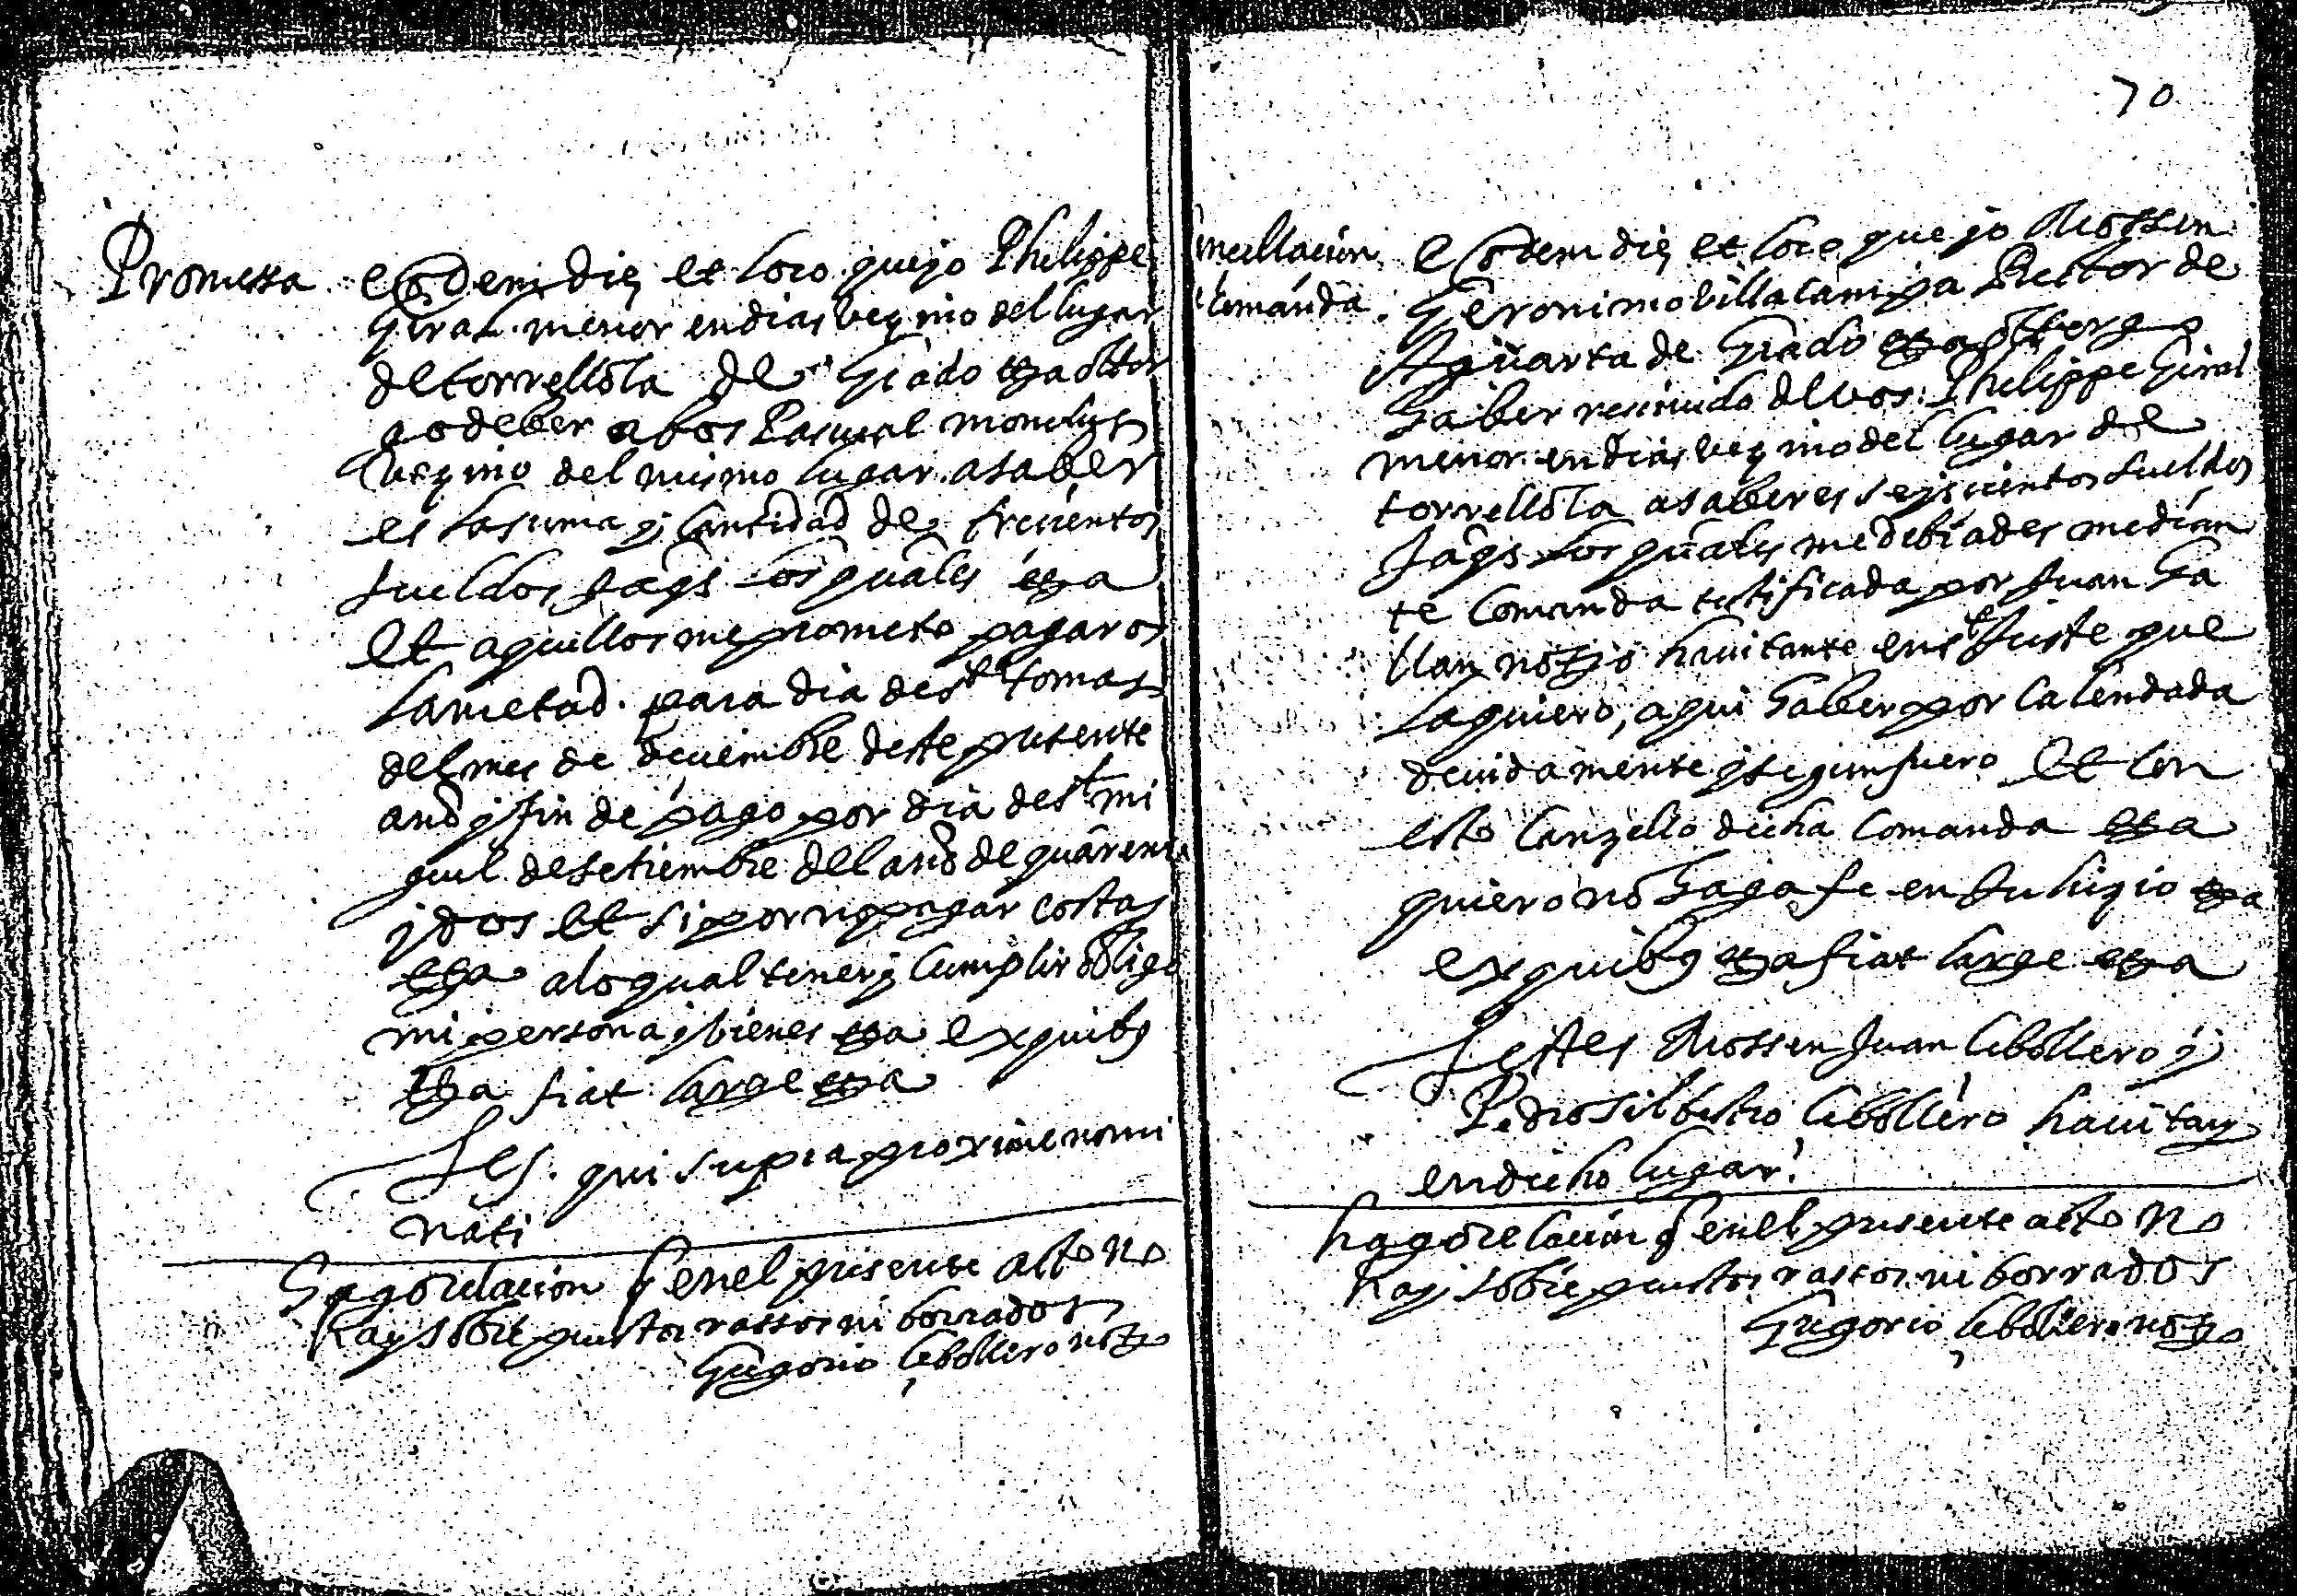 Promessa
Eodem die et loco que jo Philippe
Giral menor en dias vezino del lugar
de torrellola de Grado etza ottor
go deber a bos Pascual monclus
vezino del mismo lugar asaber
es la suma y cantidad de trecientos
sueldos Jaqs los quales etza
et aquellos me prometo pagaros
la metad para dia de st tomas
del mes de deciembre deste presente
año y fin de pago por dia de st mi
guel de setiembre del año de quarenta
y dos et si por no pagar costas
etza a lo qual tener y cumplir obligo
mi persona y bienes etza ex quibus
etza fiat large etza
Tes. qui supra proxime nomi
nati
hago relacion q en el presente acto no
hay sobre puestos rassos ni borrados
Gregorio Cebollero notº
70
ncellacion
comanda
Eodem die et loco que jo Mossen
Geronimo Villacampa Rector de
Aguarta de Grado etza ottorgo
haber recivido de vos Philippe Giral
menor en dias vezino del lugar de
torrellola asaber es seyscientos sueldos
Jaqs los quales me debiades median
te comanda testificada por Juan Ga
llan notº havitante en st Juste que
la quiero, aqui haber por calendada
devidamente y segun fuero et con
esto canzello dicha comanda etza
quiero no haga fe en Juhizio etza
ex quibus etza fiat large etza
Testes Mossen Juan Cebollero y
Pedro Silbestro Cebollero havitantes
en dicho lugar
hago relacion q en el presente acto no
hay sobre puestos rassos ni borrados
Gregorio Cebollero notº